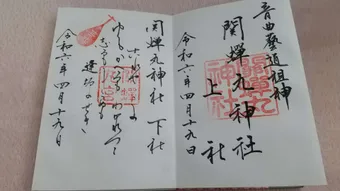 音曲藝道祖神
関蝉丸神社
上社
令和六年四月十九日
関蝉丸神社 下社
これやこの
ゆくもかへるもわかれつゝ
しるもしらぬも
逢坂のせき
令和六年四月十九日